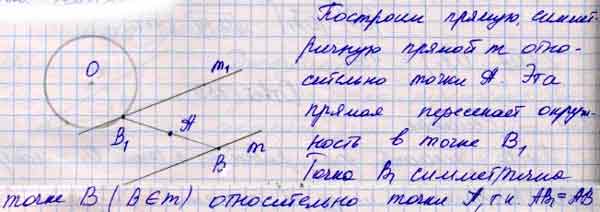 Построим прямую, симмет-
ричную прямой m отно-
сительно точки A. Эта
прямая пересекает окруж-
ность в точке B₁
Точка B₁ симметрична
точке B (B∈m) относительно точки A, т.к. AB₁=AB
O
m₁
A
B₁
B
m